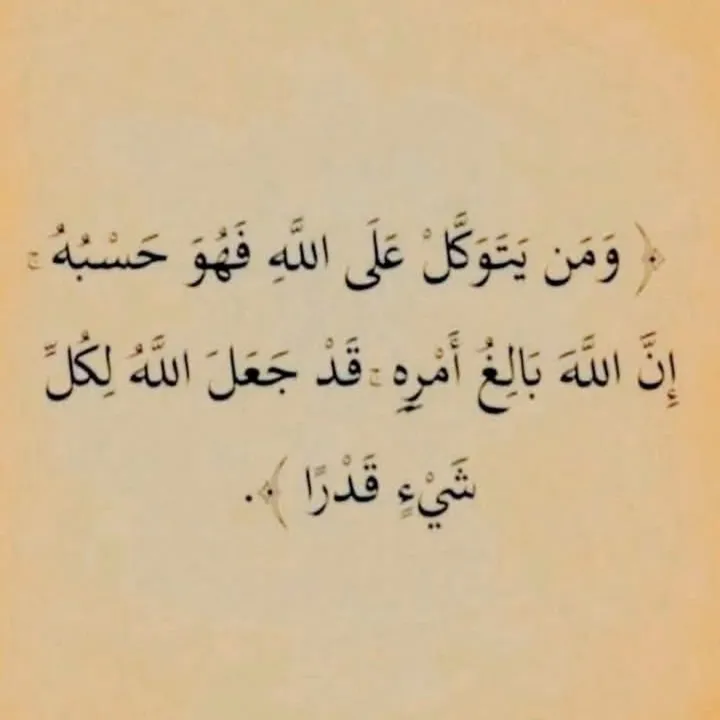 ﴿ وَمَن يَتَوَكَّلْ عَلَى اللَّهِ فَهُوَ حَسْبُهُ ۚ
إِنَّ اللَّهَ بَالِغُ أَمْرِهِ ۚ قَدْ جَعَلَ اللَّهُ لِكُلِّ
شَيْءٍ قَدْرًا ﴾.